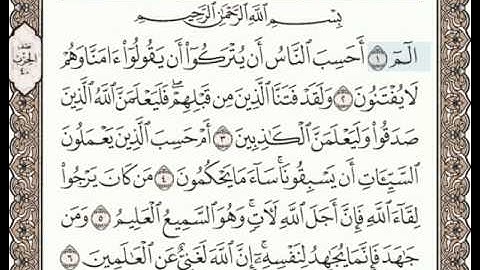 بِسْمِ اللَّهِ الرَّحْمَٰنِ الرَّحِيمِ
الٓمٓ ١ أَحَسِبَ النَّاسُ أَن يُتْرَكُوٓا۟ أَن يَقُولُوٓا۟ ءَامَنَّا وَهُمْ
لَا يُفْتَنُونَ ٢ وَلَقَدْ فَتَنَّا الَّذِينَ مِن قَبْلِهِمْ ۖ فَلَيَعْلَمَنَّ اللَّهُ الَّذِينَ
صَدَقُوا۟ وَلَيَعْلَمَنَّ الْكَٰذِبِينَ ٣ أَمْ حَسِبَ الَّذِينَ يَعْمَلُونَ
السَّيِّـَٔاتِ أَن يَسْبِقُونَا ۚ سَآءَ مَا يَحْكُمُونَ ٤ مَن كَانَ يَرْجُوا۟
لِقَآءَ اللَّهِ فَإِنَّ أَجَلَ اللَّهِ لَءَاتٍ ۚ وَهُوَ السَّمِيعُ الْعَلِيمُ ٥ وَمَن
جَٰهَدَ فَإِنَّمَا يُجَٰهِدُ لِنَفْسِهِۦٓ ۚ إِنَّ اللَّهَ لَغَنِىٌّ عَنِ الْعَٰلَمِينَ ٦